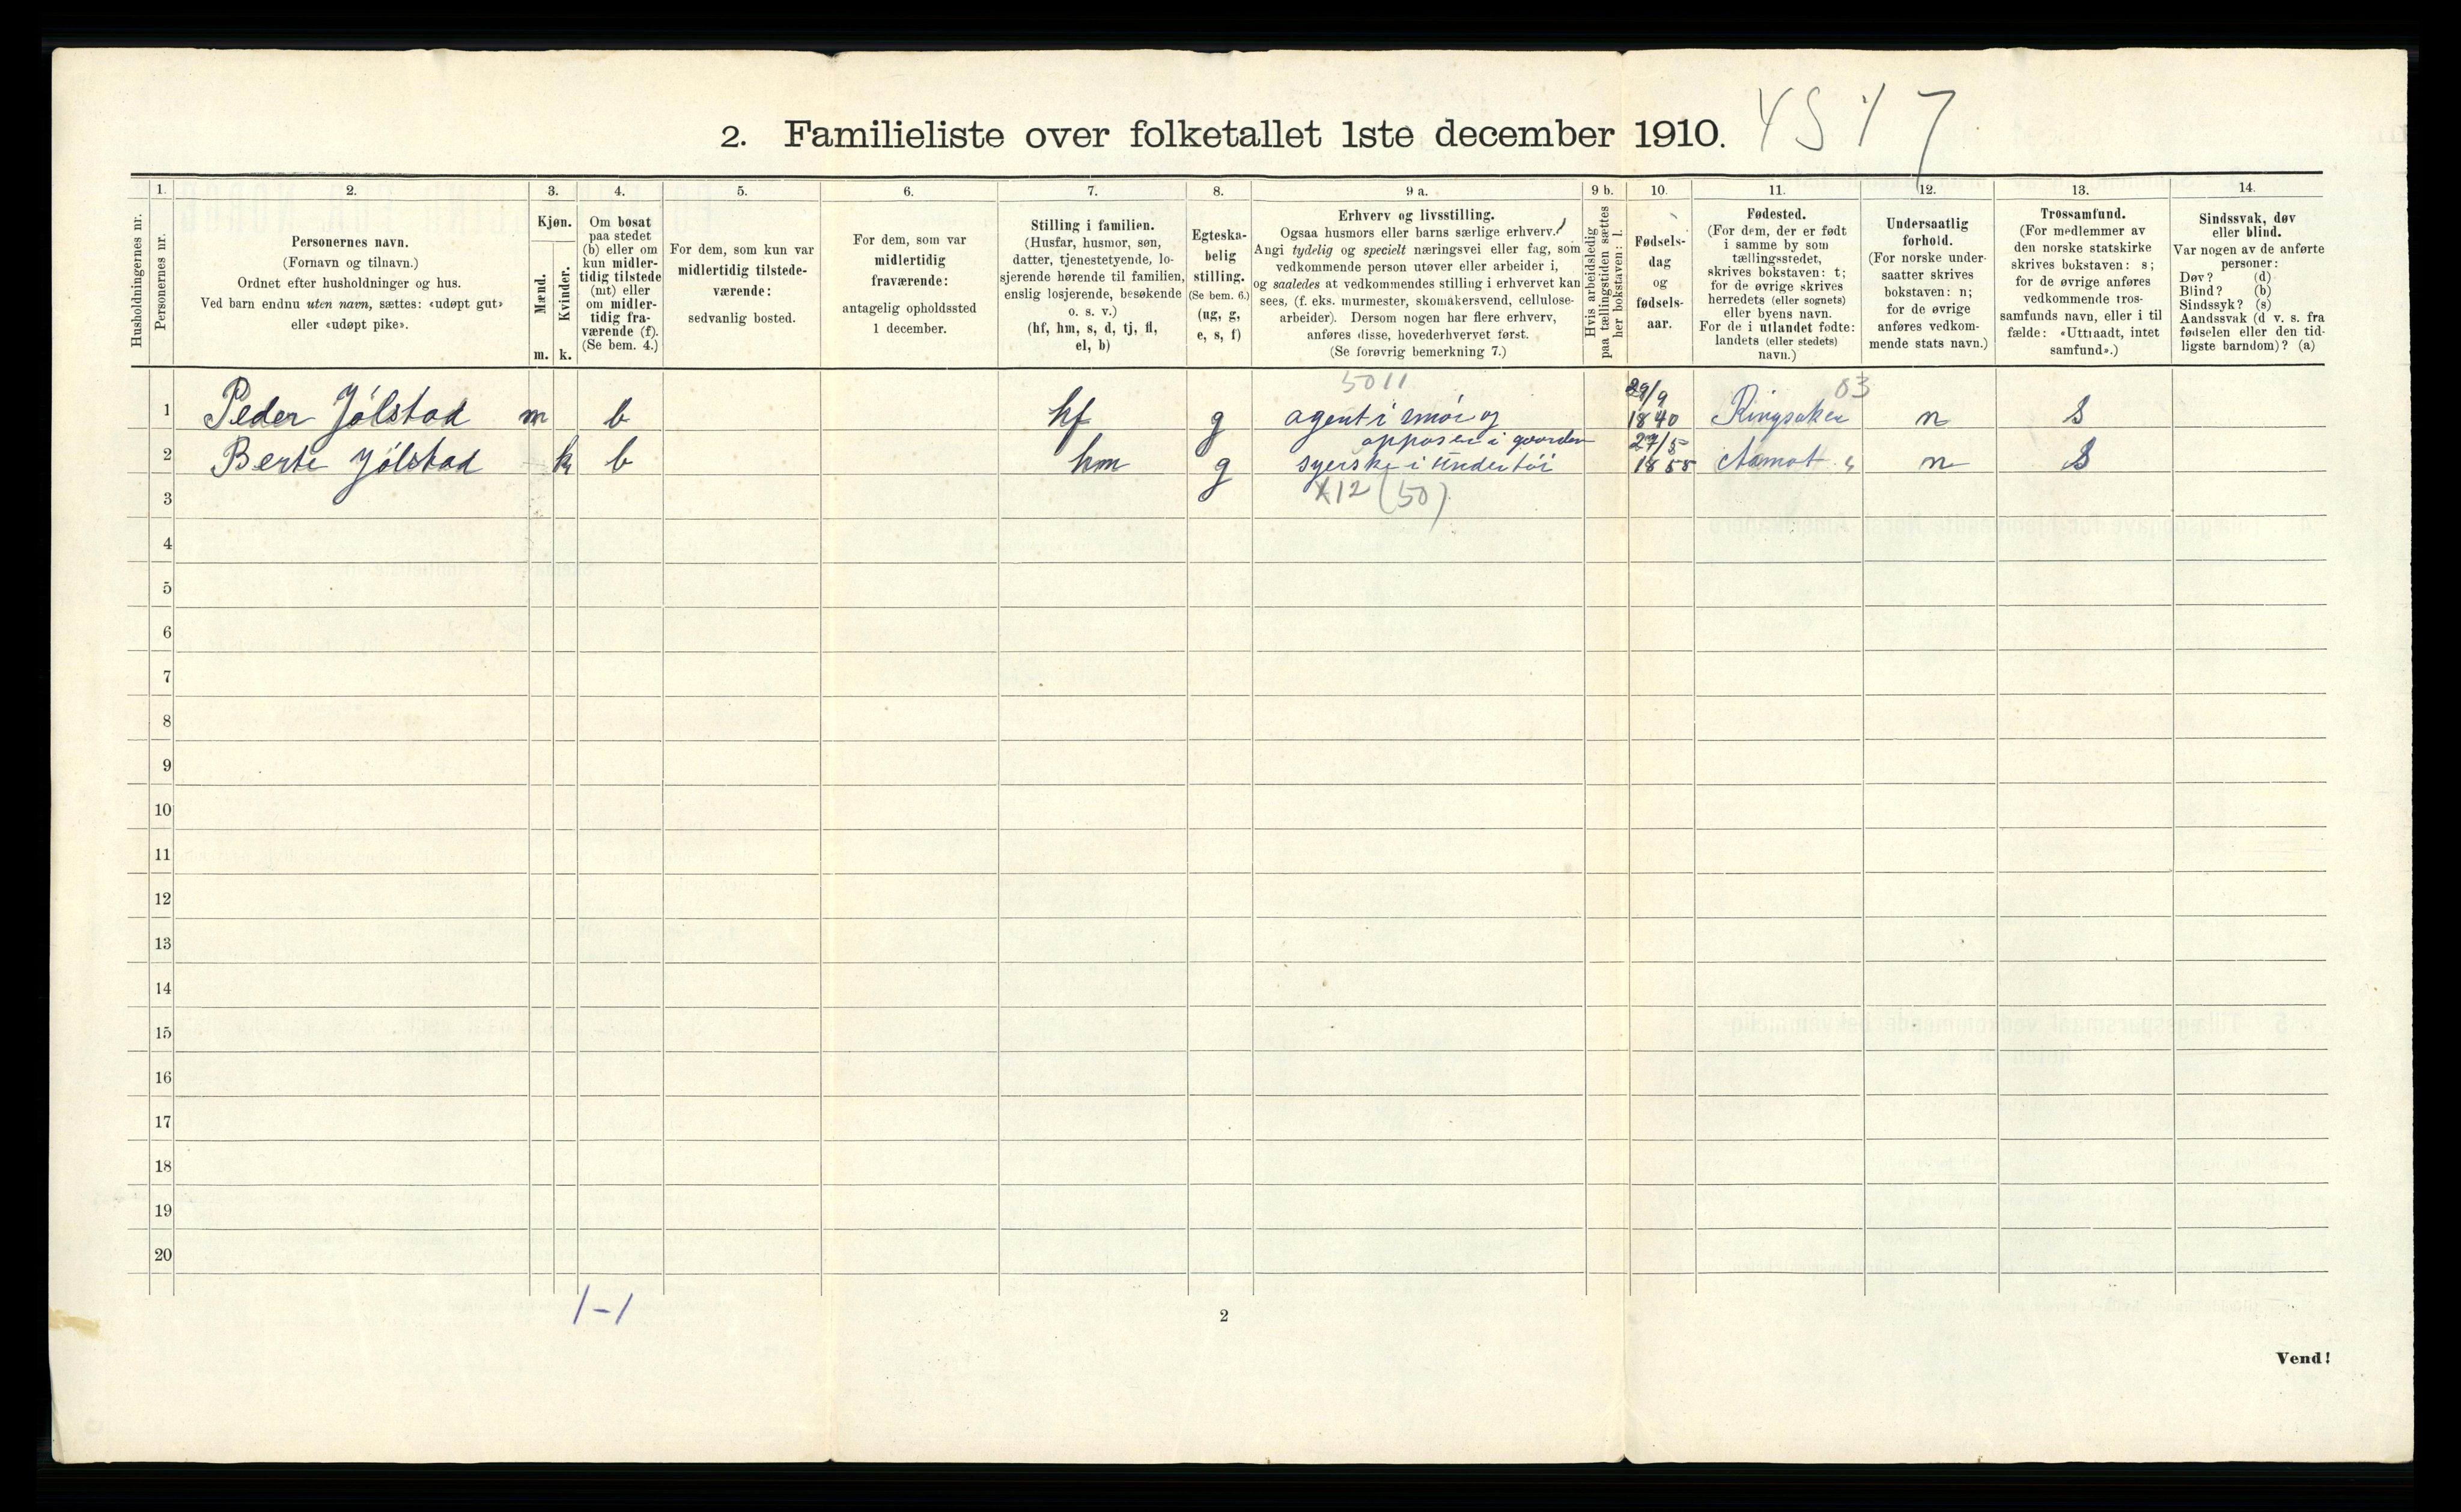 4517
2. Familieliste over folketallet 1ste december 1910.
1. 2. 3. 4. 5. 6. 7. 8. 9 a. 9 b. 10. 11. 12. 13. 14.
Husholdningernes nr.
Personernes nr.
Personernes navn.
(Fornavn og tilnavn.)
Ordnet efter husholdninger og hus.
Ved barn endnu uten navn, sættes: «udøpt gut»
eller «udøpt pike».
Kjøn.
Mænd.
Kvinder.
m. k.
Om bosat
paa stedet
(b) eller om
kun midler-
tidig tilstede
(mt) eller
om midler-
tidig fra-
værende (f).
(Se bem. 4.)
For dem, som kun var
midlertidig tilstede-
værende:
sedvanlig bosted.
For dem, som var
midlertidig
fraværende:
antagelig opholdssted
1 december.
Stilling i familien.
(Husfar, husmor, søn,
datter, tjenestetyende, lo-
sjerende hørende til familien,
enslig losjerende, besøkende
o. s. v.)
(hf, hm, s, d, tj, fl,
el, b)
Egteska-
belig
stilling.
(Se bem. 6.)
(ug, g,
e, s, f)
Erhverv og livsstilling.
Ogsaa husmors eller barns særlige erhverv.
Angi tydelig og specielt næringsvei eller fag, som
vedkommende person utøver eller arbeider i,
og saaledes at vedkommendes stilling i erhvervet kan
sees, (f. eks. murmester, skomakersvend, cellulose-
arbeider). Dersom nogen har flere erhverv,
anføres disse, hovederhvervet først.
(Se forøvrig bemerkning 7.)
Hvis arbeidsledig
paa tællingstiden sættes
her bokstaven: l.
Fødsels-
dag
og
fødsels-
aar.
Fødested.
(For dem, der er født
i samme by som
tællingsstedet,
skrives bokstaven: t;
for de øvrige skrives
herredets (eller sognets)
eller byens navn.
For de i utlandet fødte:
landets (eller stedets)
navn.)
Undersaatlig
forhold.
(For norske under-
saatter skrives
bokstaven: n;
for de øvrige
anføres vedkom-
mende stats navn.)
Trossamfund.
(For medlemmer av
den norske statskirke
skrives bokstaven: s;
for de øvrige anføres
vedkommende tros-
samfunds navn, eller i til
fælde: «Uttraadt, intet
samfund».)
Sindssvak, døv
eller blind.
Var nogen av de anførte
personer:
Døv? (d)
Blind? (b)
Sindssyk? (s)
Aandssvak (d v. s. fra
fødselen eller den tid-
ligste barndom)? (a)
5011 29/9 03
1 Peder Jølstad m b hf g agent i smør og 1840 Ringsaker n S
oppaser i gaarden 27/5
2 Berte Jølstad k b hm g syerske i undertøi 1855 Aamot n S
3 X12 (50)
4
5
6
7
8
9
10
11
12
13
14
15
16
17
18
19
20
1-1
2
Vend!